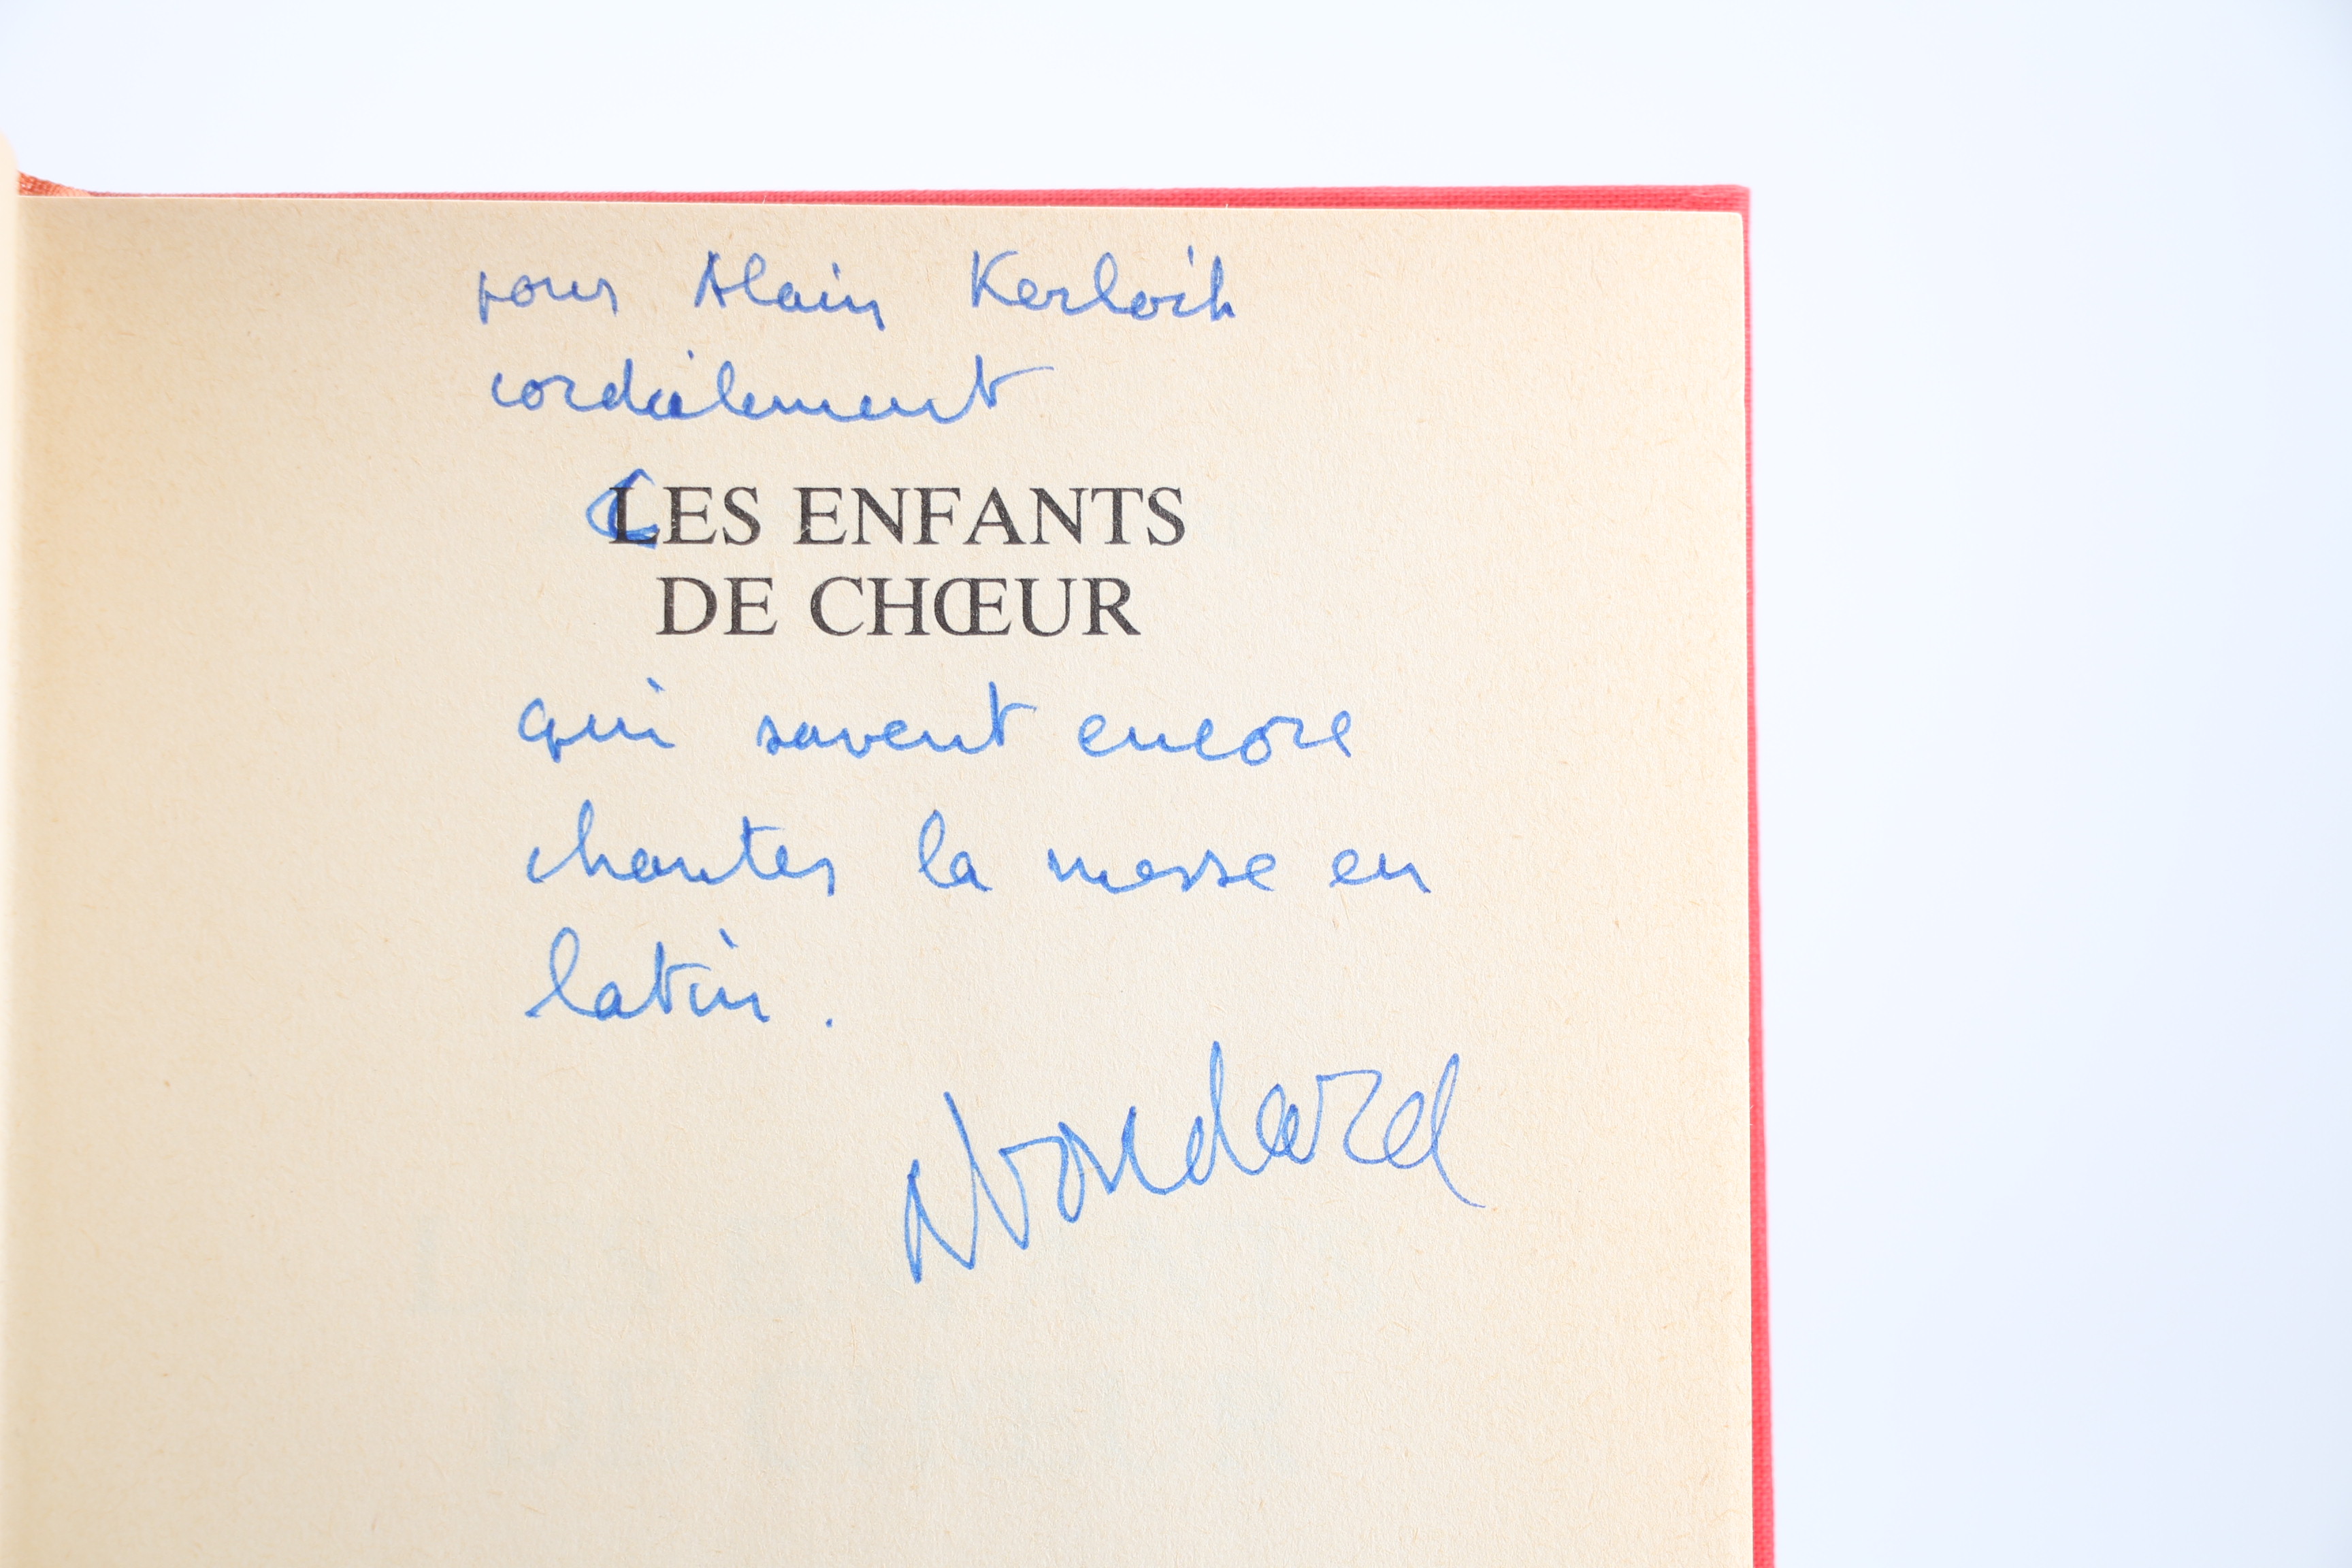 pour Alain Kerloc'h
cordialement
CES ENFANTS
DE CHŒUR
qui savent encore
chanter la messe en
latin.
ABoudard